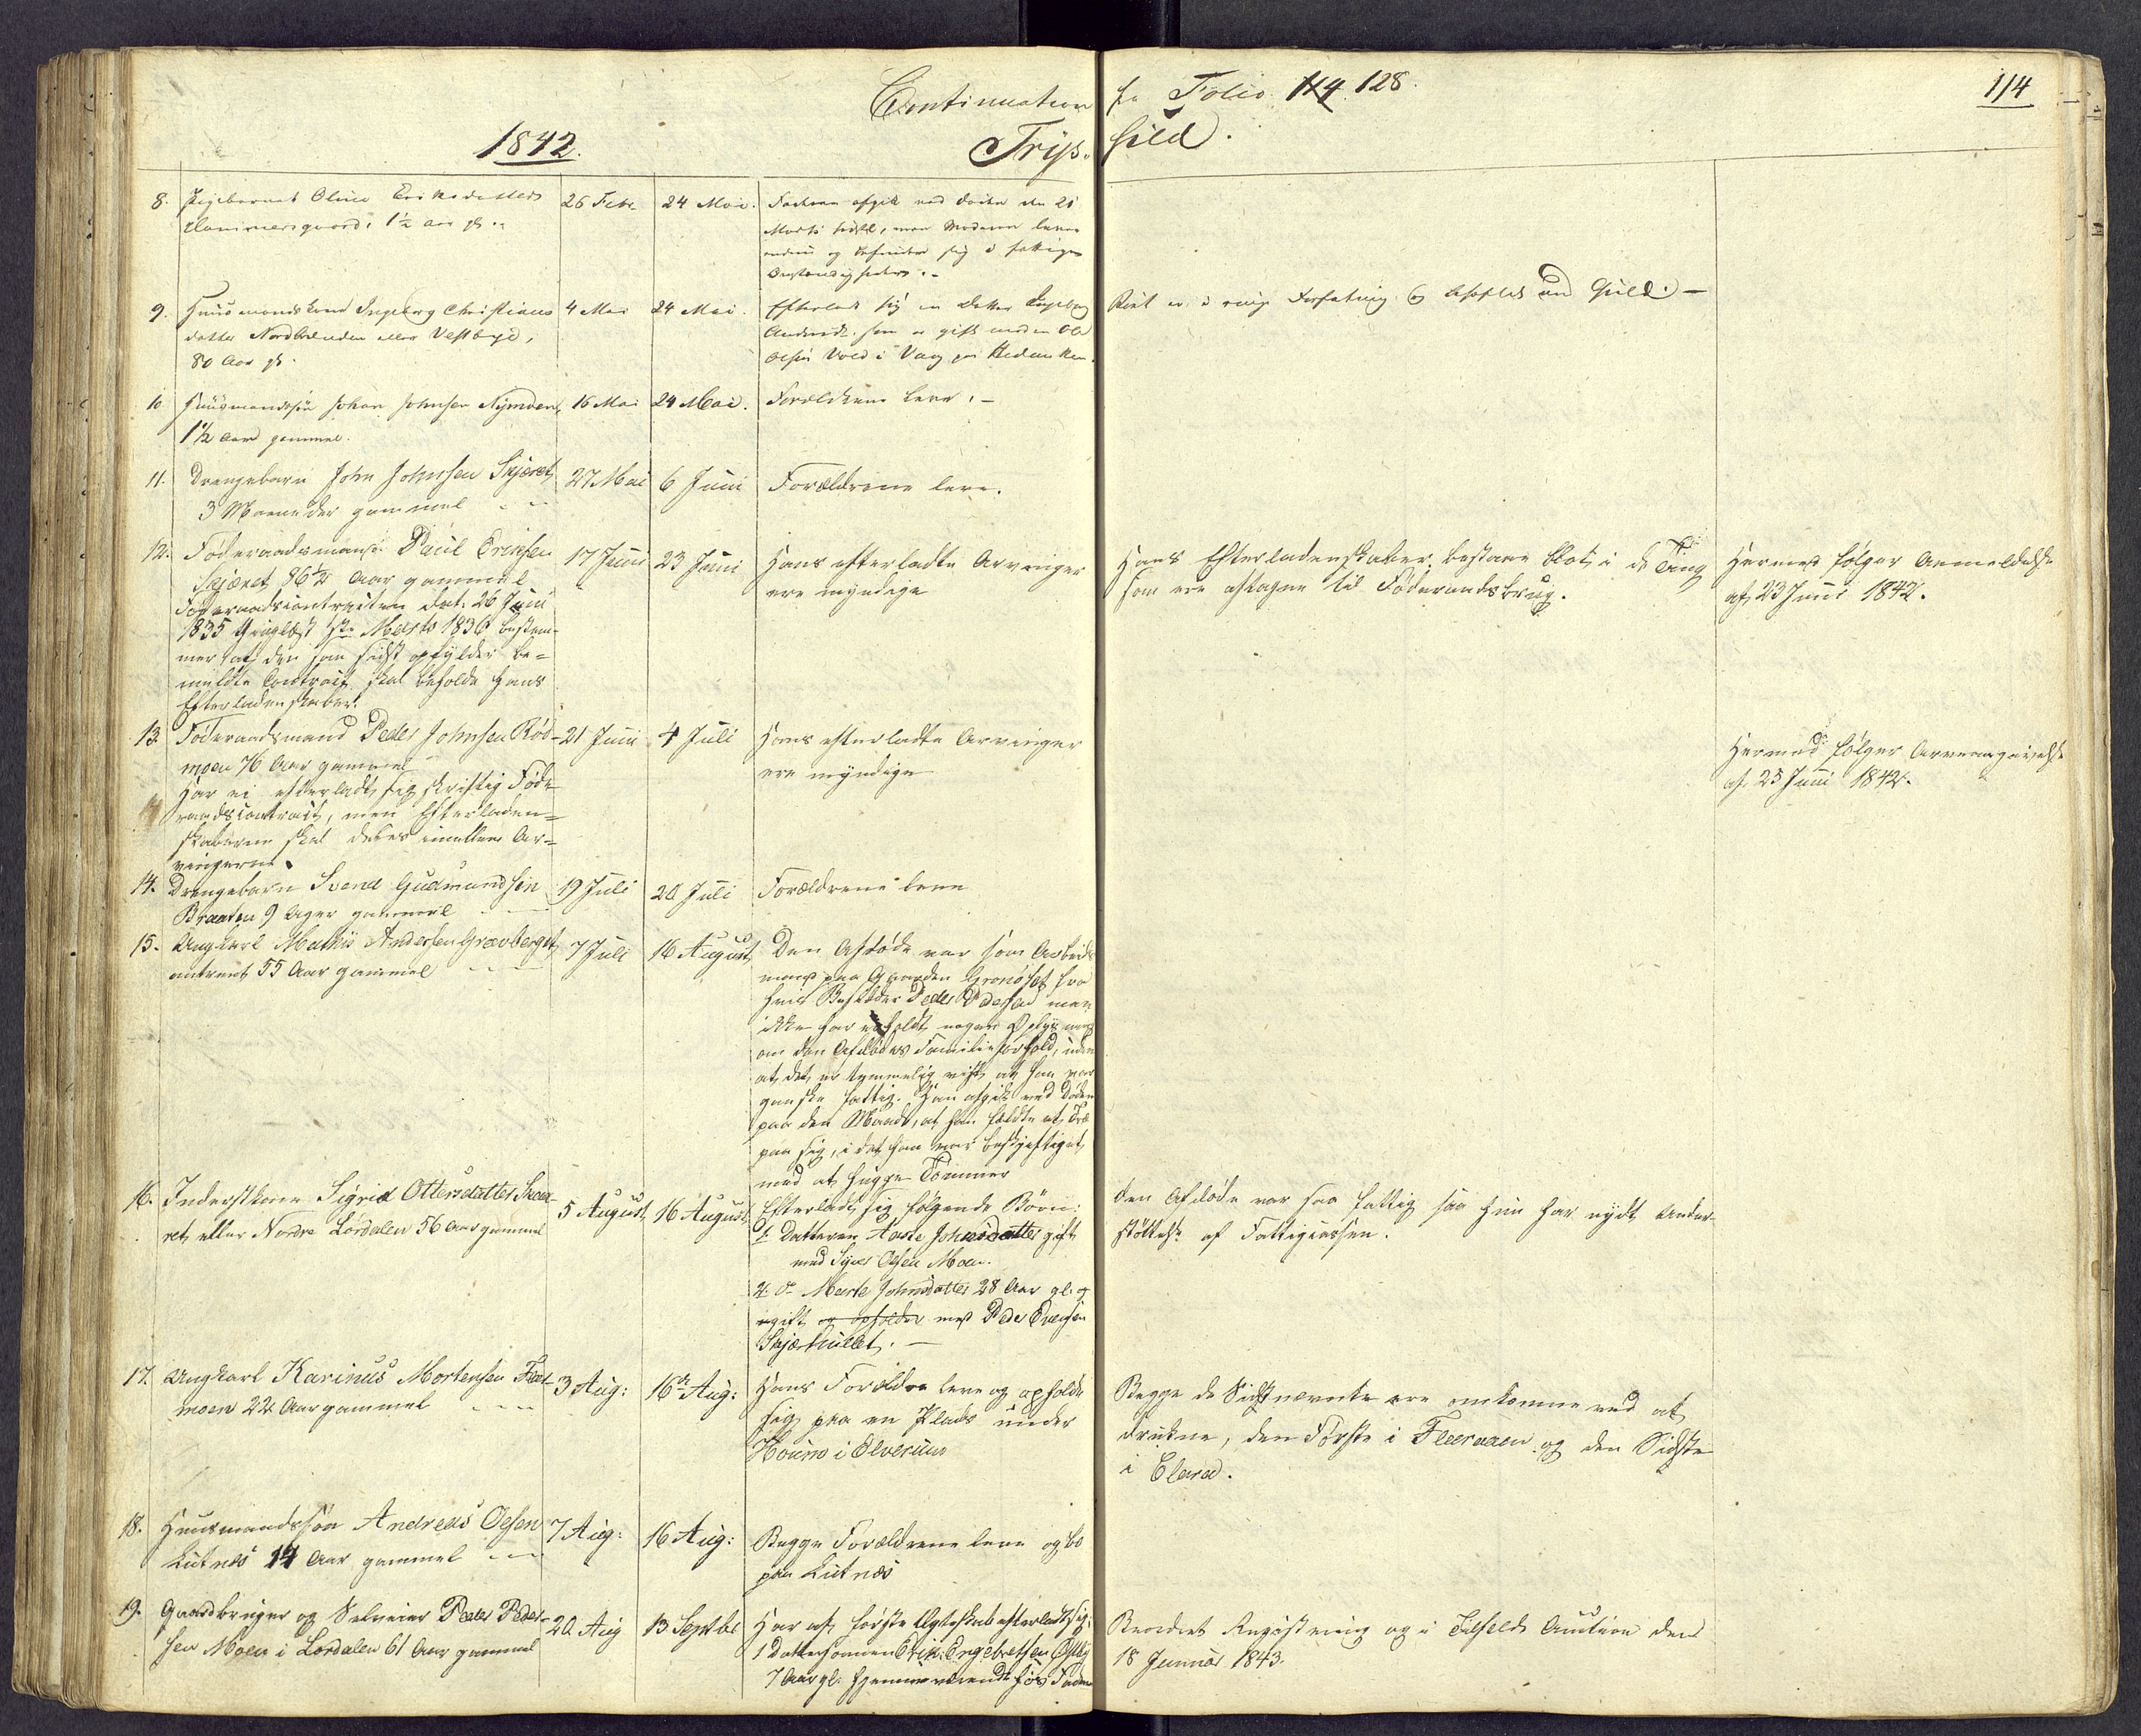 Continuation fra Folio 114 128.
114
1842.
Trys- sild.
8. Pigebarnet Oline Eriksdatter
Hammersgaard, 1½ Aar gl.
26 Febr
24 Mai.
Faderen afgik ved Døden den 21
Marts sidstl, men Moderen lever
endnu og befinder sig i fattige
Omstændigheder.
9. Huusmandskone Ingeborg Christians
datter Nordbrenden eller Vestbye,
80 Aar gl.
4 Mai
24 Mai.
Efterlod sig en Datter Ingeborg
Andersdr. som er gift med en Ole
Olsen Vold i Vang paa Hedemken.
Boet er i ringe Forfatning og behæftet med Gield. -
10 Huusmandssøn Johan Johnsen Nymoen,
1½ Aar gammel.
16 Mai
24 Mai.
Forældrene leve. -
11. Drengebarn John Johnsen Skjæret
3 Maaneder gammel
27 Mai
6 Juni
Forældrene leve.
12. Føderaadsmand Paul Erichsen
Skjæret 86½ Aar gammel
Føderaadscontracten dat: 26 Juni
1835 thinglæst 1ste Marts 1836 bestem-
mer at den som sidst opfylder be-
meldte Contract skal beholde hans
Efterladenskaber.
17 Juni
23 Juni
Hans efterladte Arvinger
ere myndige
Hans Efterladenskaber bestaae blot i de Ting
som ere aftagne til Føderaadsbrug.
Hermed følger Anmeldelse
af 23 Juni 1842.
13. Føderaadsmand Peder Johnsen Rød-
moen 76 Aar gammel
Har ei efterladt sig skriftlig Føde
raadscontract, men Efterladen-
skaberne skal deles imellem Ar-
vingerne.
21 Juni
4 Juli
Hans efterladte Arvinger
ere myndige
Hermed følger Arveangivelse
af 23 Juni 1842.
14. Drengebarn Svend Gudmundsen
Braaten 9 Uger gammel
19 Juli
20 Juli
Forældrene leve
15. Ungkarl Mathis Andersen Gravberget
omtrent 55 Aar gammel
7 Juli
16 August
Den Afdøde var som Arbeids
mand paa Gaarden Grønoset fra
hvis Besidder Peder Pedersen man
ikke har erholdt nogen Oplysning
om den Afdødes Familieforhold, uden
at det er temmelig vist at han var
ganske fattig. Han afgik ved Døden
paa den Maade, at han fældte et Træ
paa sig, i det han var beskjeftiget
med at hugge Tømmer
16. Inderstkone Sigrid Ottersdatter Skæ-
ret eller Nordre Lørdalen 56 Aar gammel
5 August
16 August
Efterladt sig følgende Børn:
1. Datteren Aaste Johnsdatter gift
med Syver Olsen Moen.
2. do Marte Johnsdatter 28 Aar gl. og
ugift og opholder med Peder Evensen
Skjærhullet. -
Den Afdøde var saa fattig saa hun har nydt Under-
støttelse af Fattigcassen.
17. Ungkarl Karinus Mortensen Flert-
moen 22 Aar gammel
3 Aug:
16de Aug:
Hans Forældre leve og opholde
sig paa en Plads under
Hourn i Elverum
Begge de Sidstnævnte ere omkomne ved at
drukne, den Første i Fleraaen og den Sidste
i Elven.
18. Huusmandssøn Andreas Olsen
Lutnes 14 Aar gammel
7 Aug:
16 Aug:
Begge Forældrene leve og bo
paa Lutnes
19. Gaardbruger og Selveier Peder Peder-
sen Moen i Lørdalen 61 Aar gammel
20 Aug
13 Septbr
Har af første Ægteskab efterladt sig:
1 Dattersønnen Erik Engebretsen Østby
7 Aar gl. hjemmeværende hos Faderen
Berordret Registrering og i Tilfælde Auction den
18 Januar 1843.